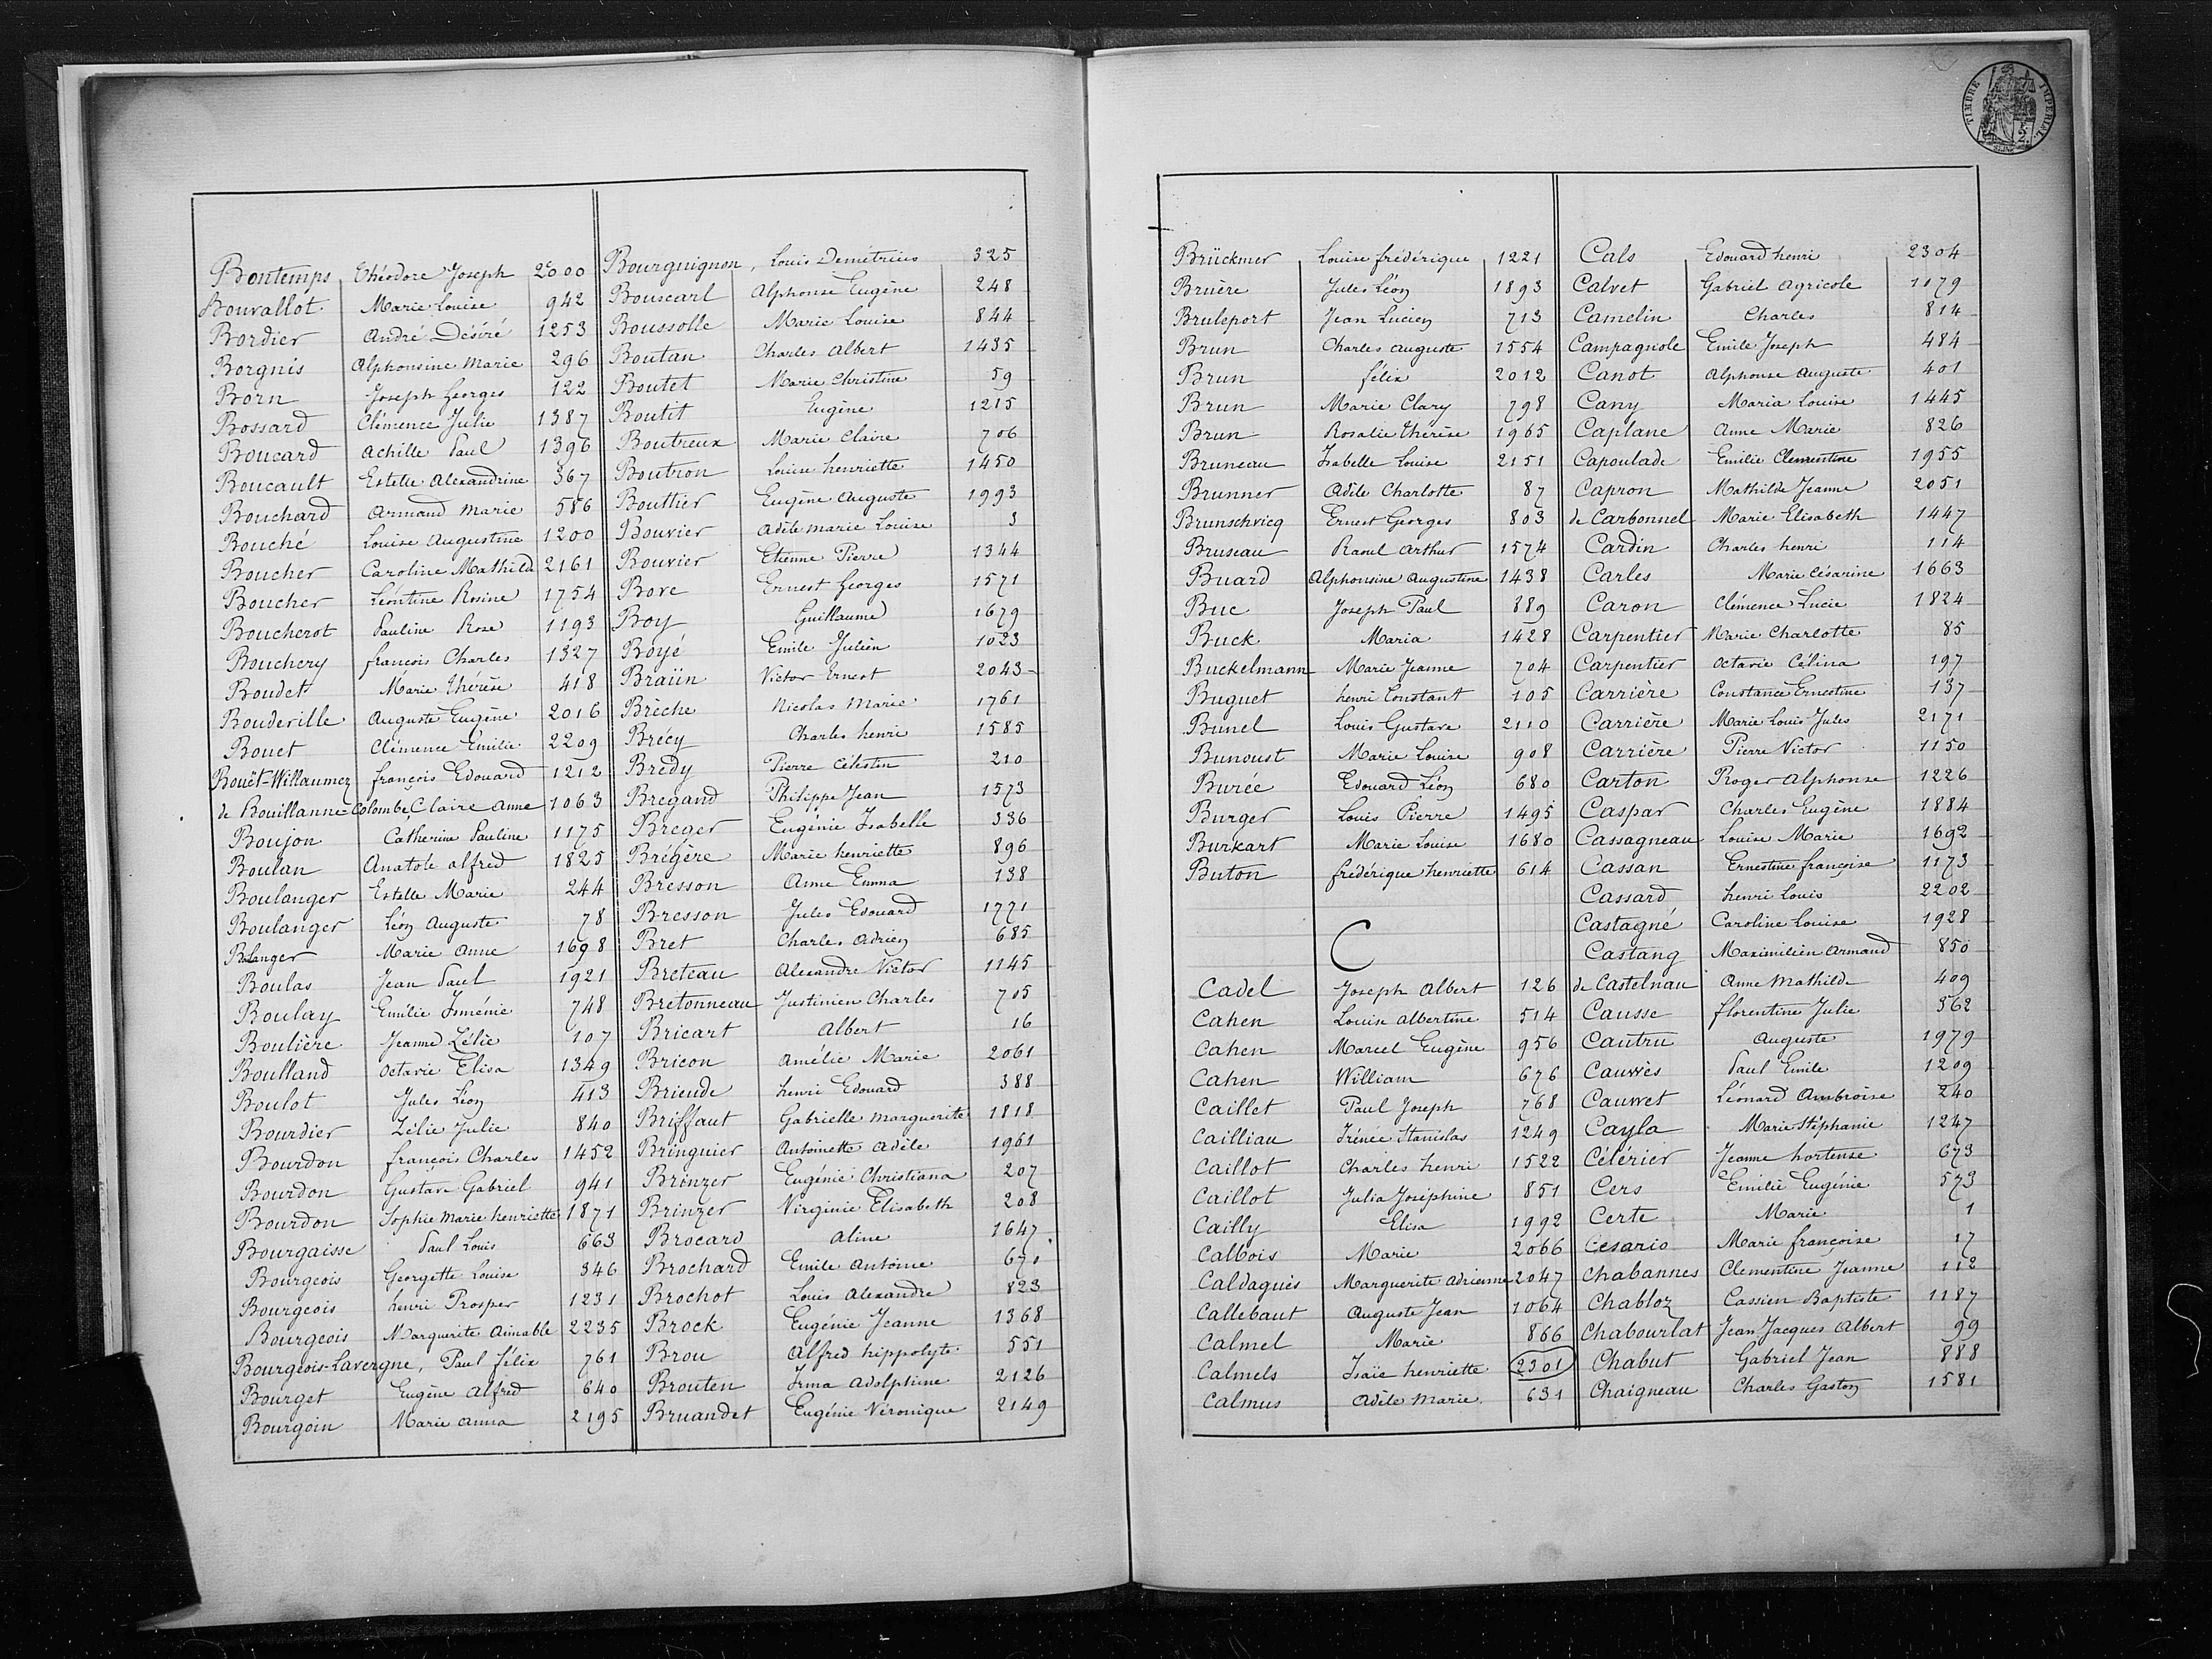 TIMBRE IMPERIAL
Bontemps Théodore Joseph 2000
Bonvallot Marie Louise 942
Bordier André Désiré 1253
Borgnis Alphonsine Marie 296
Born Joseph Georges 122
Bossard Clémence Julie 1387
Boucard Achille Paul 1396
Boucault Estelle Alexandrine 367
Bouchard Armand Marie 586
Bouché Louise Augustine 1200
Boucher Caroline Mathilde 2161
Boucher Léontine Rosine 1754
Boucherot Pauline Rose 1193
Bouchery françois Charles 1327
Boudet Marie Thérèse 418
Bouderille Auguste Eugène 2016
Bouet Clémence Emilie 2209
Bouët-Willaumez françois Edouard 1212
de Bouillanne-Colombe, Claire Anne 1063
Boujon Catherine Pauline 1175
Boulan Anatole alfred 1825
Boulanger Estelle Marie 244
Boulanger Léon Auguste 78
Boulanger Marie Anne 1698
Boulas Jean Paul 1921
Boulay Emélie Isménie 748
Boulière Jeanne Zélie 107
Boulland Octavie Elisa 1349
Boulot Jules Léon 413
Bourdier Zélie Julie 840
Bourdon françois Charles 1452
Bourdon Gustave Gabriel 941
Bourdon Sophie Marie henriette 1871
Bourgaisse Paul Louis 663
Bourgeois Georgette Louise 346
Bourgeois henri Prosper 1231
Bourgeois Marguerite Aimable 2235
Bourgeois-Lavergne, Paul félix 761
Bourget Eugène Alfred 640
Bourgoin Marie Anna 2195
Bourguignon, Louis Demétrius 325
Bouscarl Alphonse Eugène 248
Boussolle Marie Louise 844
Boutan Charles Albert 1435
Boutet Marie Christine 59
Boutit Eugène 1215
Boutreux Marie Claire 706
Boutron Louise henriette 1450
Bouttier Eugène Auguste 1993
Bouvier Adèle Marie Louise 3
Bouvier Etienne Pierre 1344
Bove Ernest Georges 1571
Boy Guillaume 1679
Boyé Emile Julien 1023
Braün Victor Ernest 2043
Breche Nicolas Marie 1761
Brécy Charles henri 1585
Brédy Pierre Célestin 210
Bregand Philippe Jean 1573
Breger Eugénie Isabelle 336
Brégère Marie henriette 896
Bresson Anne Emma 138
Bresson Jules Edouard 1771
Bret Charles Adrien 685
Breteau Alexandre Victor 1145
Bretonneau Justinien Charles 705
Bricart Albert 16
Bricon Amélie Marie 2061
Brieude henri Edouard 388
Briffaut Gabrielle Marguerite 1818
Bringuier Antoinette Adèle 1961
Brinzer Eugénie Christiana 207
Brinzer Virginie Elisabeth 208
Brocard Aline 1647
Brochard Emile Antoine 671
Brochot Louis Alexandre 823
Brock Eugénie Jeanne 1368
Brou Alfred hippolyte 551
Brouten Irma Adolphine 2126
Bruandet Eugénie Véronique 2149
Brückmer Louise frédérique 1221
Bruère Jules Léon 1893
Bruleport Jean Lucien 713
Brun Charles Auguste 1554
Brun félix 2012
Brun Marie Clary 798
Brun Rosalie Thérèse 1965
Bruneau Isabelle Louise 2151
Brunner Adèle Charlotte 87
Brunschvicq Ernest Georges 803
Bruseau Raoul Arthur 1574
Buard Alphonsine Augustine 1438
Buc Joseph Paul 889
Buck Maria 1428
Buckelmann Marie Jeanne 704
Buguet henri Constant 105
Bunel Louis Gustave 2110
Bunoust Marie Louise 908
Burée Edouard Léon 680
Burger Louis Pierre 1495
Burkart Marie Louise 1680
Buton frédérique henriette 614
C
Cadel Joseph Albert 126
Cahen Louise Albertine 514
Cahen Marcel Eugène 956
Cahen William 676
Caillet Paul Joseph 768
Cailliau Irénée Stanislas 1249
Caillot Charles henri 1522
Caillot Julia Joséphine 851
Cailly Elisa 1992
Calbois Marie 2066
Caldaguès Marguerite Adrienne 2047
Callebaut Auguste Jean 1064
Calmel Marie 866
Calmels Isaïe henriette 2301
Calmus Adèle Marie 631
Cals Edouard henri 2304
Calvet Gabriel Agricole 1179
Camelin Charles 814
Campagnole Emile Joseph 484
Canot Alphonse Auguste 401
Cany Maria Louise 1445
Caplane Anne Marie 826
Capoulade Emilie Clementine 1955
Capron Mathilde Jeanne 2051
de Carbonnel Marie Elisabeth 1447
Cardin Charles henri 114
Carles Marie Césarine 1663
Caron Clémence Lucie 1824
Carpentier Marie Charlotte 85
Carpentier Octavie Célina 197
Carrière Constance Ernestine 137
Carrière Marie Louis Jules 2171
Carrière Pierre Victor 1150
Carton Roger Alphonse 1226
Caspar Charles Eugène 1884
Cassagneau Louise Marie 1692
Cassan Ernestine françoise 1173
Cassard henri Louis 2202
Castagné Caroline Louise 1928
Castang Maximilien Armand 850
de Castelnau Anne Mathilde 409
Causse florentine Julie 362
Cautru Auguste 1979
Cauvès Paul Emile 1209
Cauvet Léonard Ambroise 240
Cayla Marie Stéphanie 1247
Célérier Jeanne hortense 673
Cers Emilie Eugénie 573
Certe Marie 1
Cesario Marie françoise 17
Chabannes Clementine Jeanne 112
Chabloz Cassien Baptiste 1187
Chabourlat Jean Jacques Albert 99
Chabut Gabriel Jean 888
Chaigneau Charles Gaston 1581